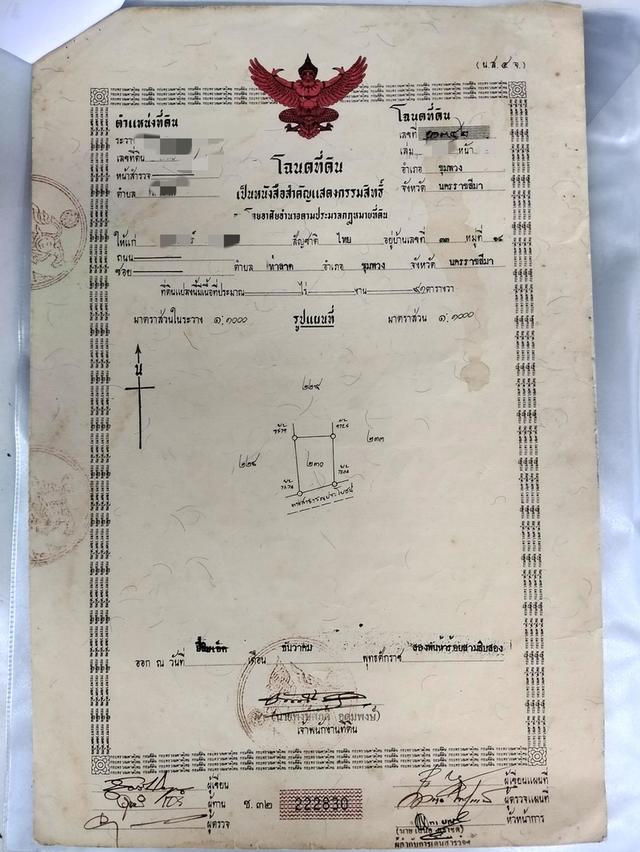 (น.ส. ๔ จ.)
ตำแหน่งที่ดิน
ระวาง
เลขที่ดิน
หน้าสำรวจ
ตำบล
โฉนดที่ดิน
เลขที่
เล่ม หน้า
อำเภอ ชุมพวง
จังหวัด นครราชสีมา
โฉนดที่ดิน
เป็นหนังสือสำคัญแสดงกรรมสิทธิ์
โดยอาศัยอำนาจตามประมวลกฎหมายที่ดิน
ให้แก่ สัญชาติ ไทย อยู่บ้านเลขที่ ๓๓ หมู่ที่ ๑๔
ถนน
ซอย ตำบล ท่าลาด อำเภอ ชุมพวง จังหวัด นครราชสีมา
ที่ดินแปลงนี้มีเนื้อที่ประมาณ ไร่ งาน ๙๑ ตารางวา
มาตราส่วนในระวาง ๑:๑๐๐๐ รูปแผนที่ มาตราส่วน ๑:๑๐๐๐
น
๒๒๙
๒๓๓
๒๒๘
๒๓๐
ทางสาธารณประโยชน์
ออก ณ วันที่ สิบเอ็ด เดือน ธันวาคม พุทธศักราช สองพันห้าร้อยสามสิบสอง
เจ้าพนักงานที่ดิน
ผู้เขียน
ผู้ทาน
ผู้ตรวจ
ช. ๓๒ 222830
ผู้เขียนแผนที่
ผู้ตรวจแผนที่
หัวหน้าการ